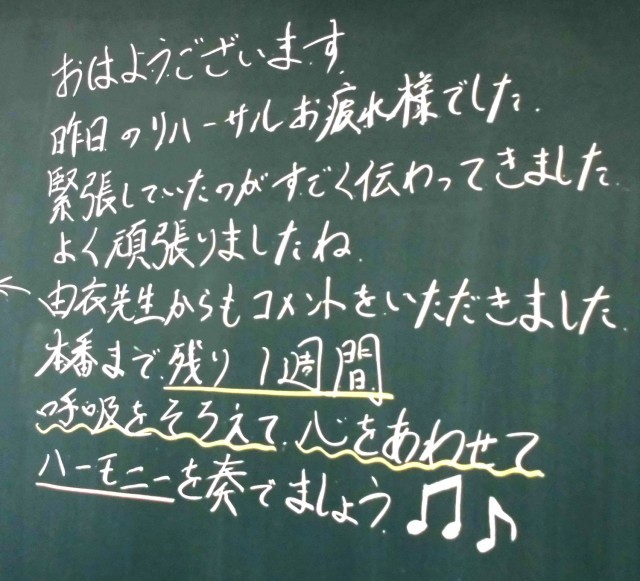 おはようございます
昨日のリハーサルお疲れ様でした.
緊張していたのがすごく伝わってきました.
よく頑張りましたね.
← 由衣先生からもコメントをいただきました.
本番まで残り1週間
呼吸をそろえて 心をあわせて
ハーモニーを奏でましょう ♫♪